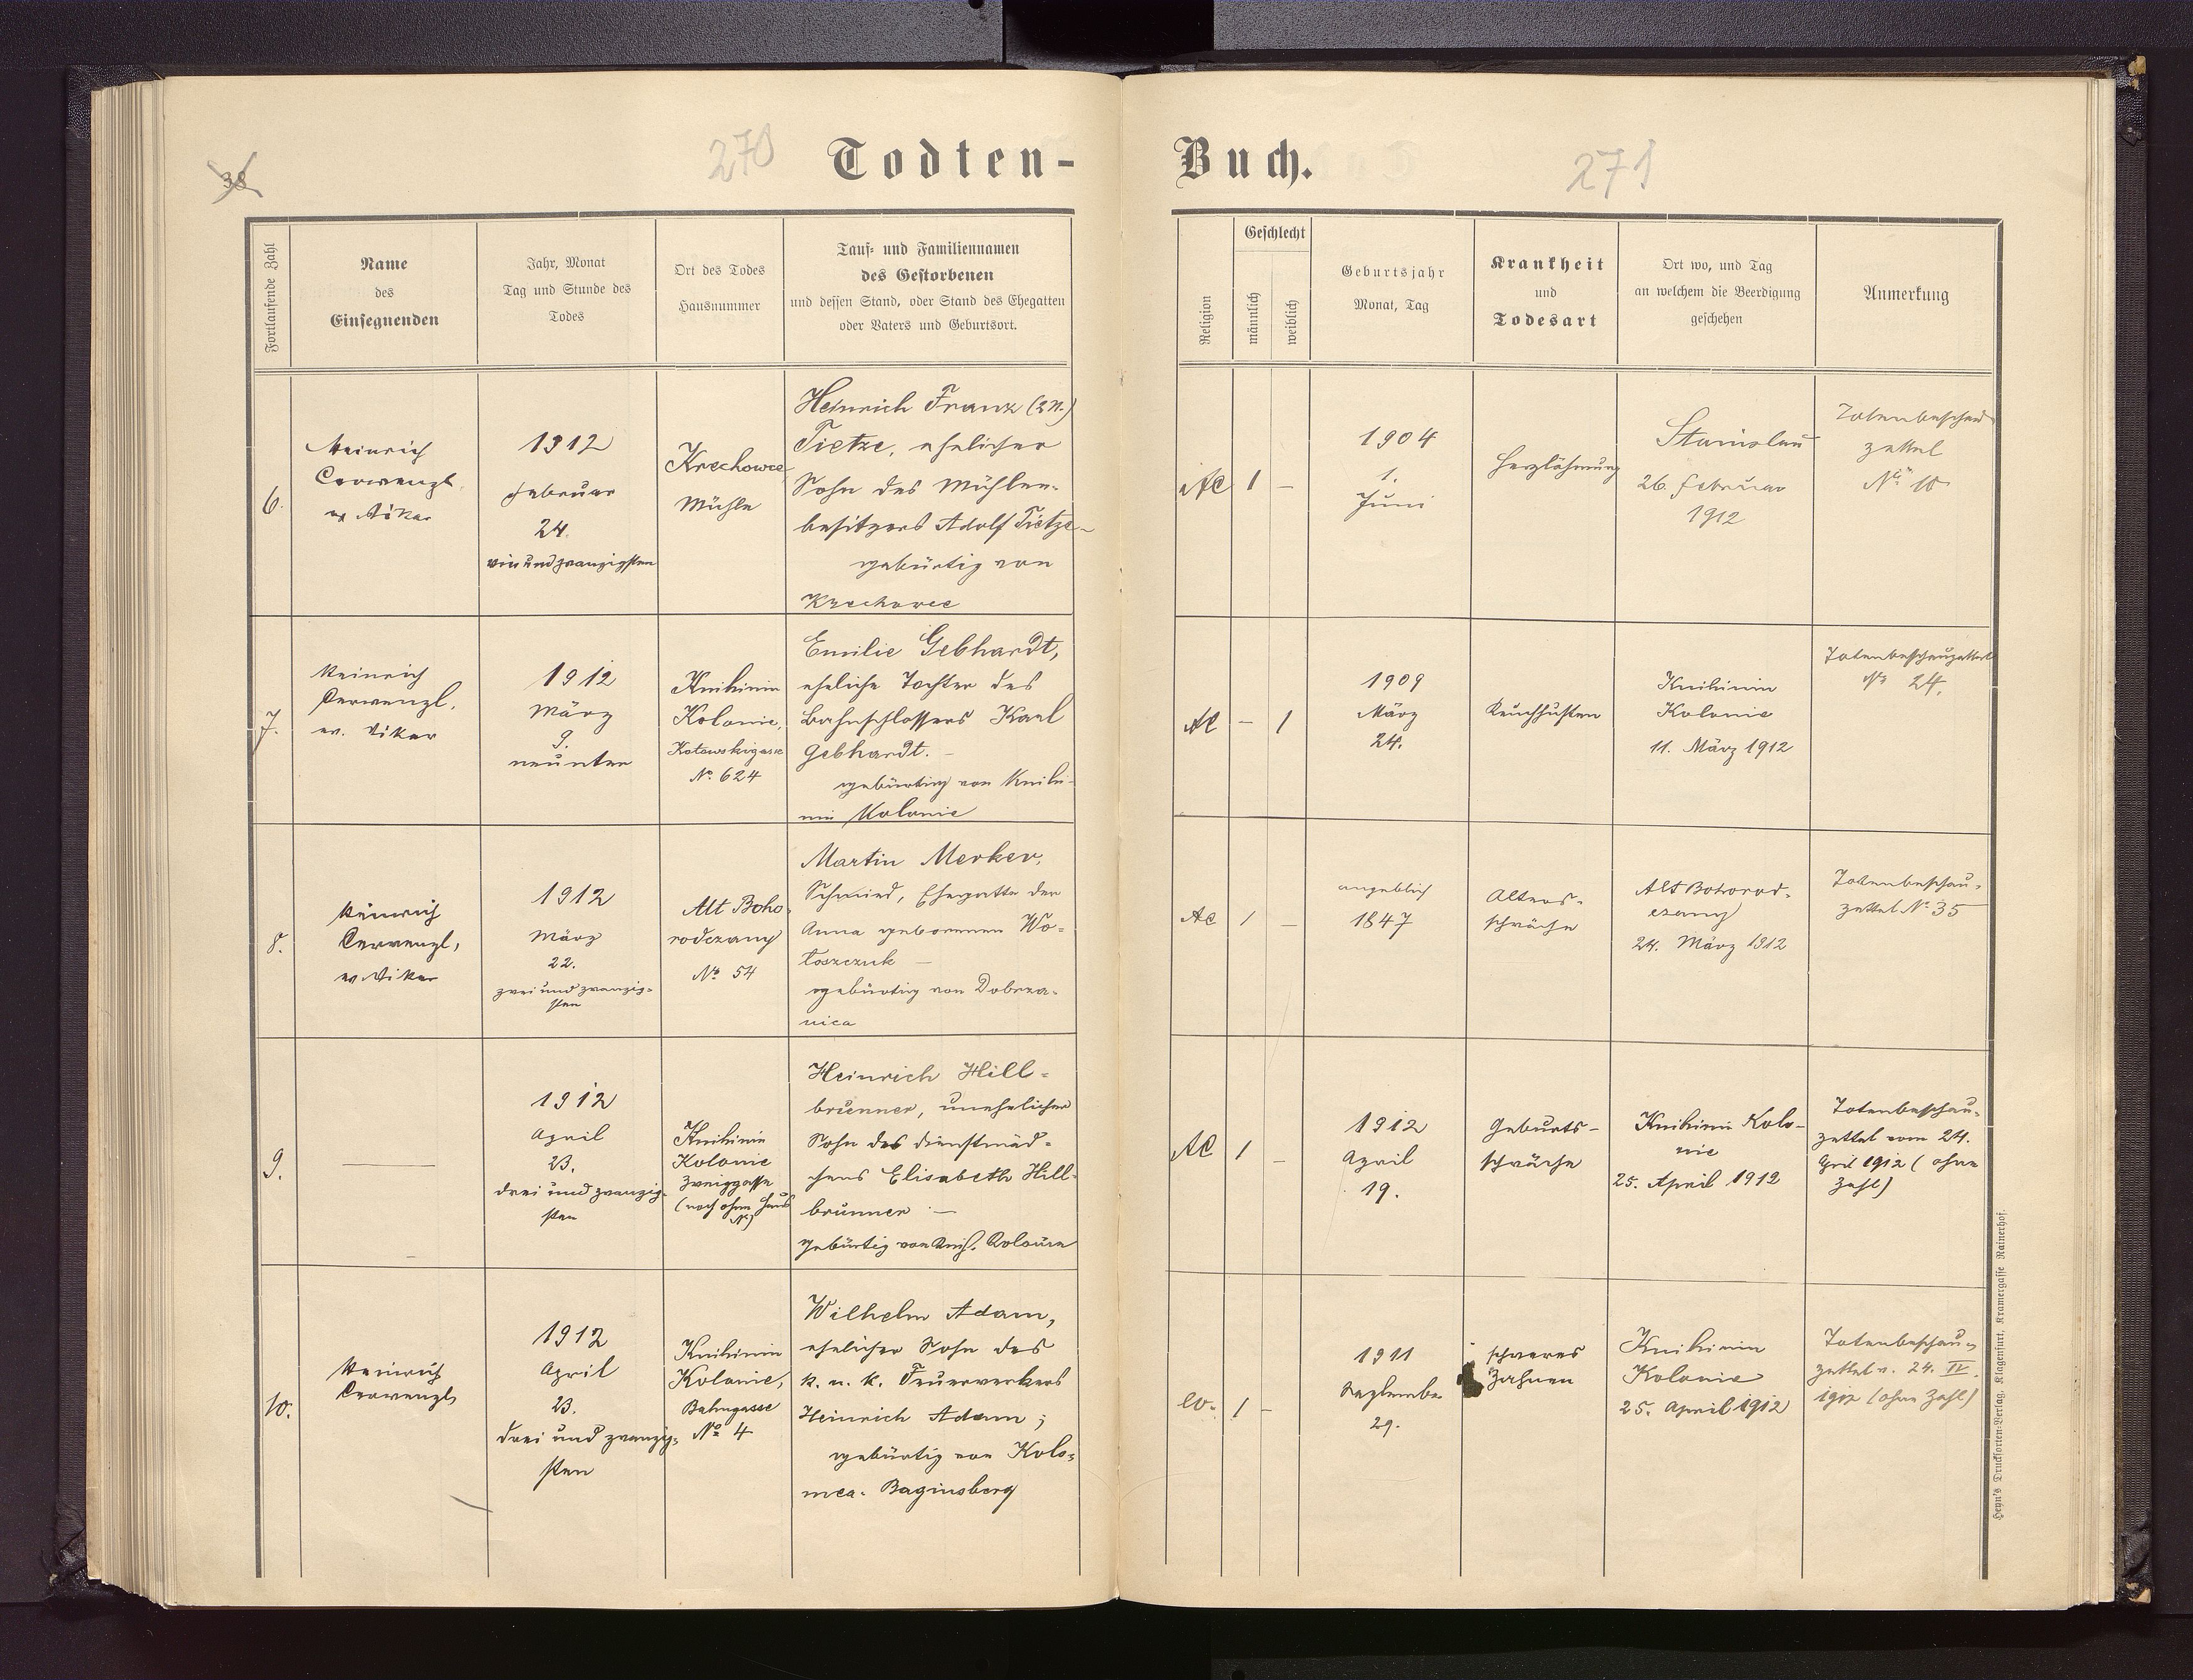 38
270
Todten-
Buch.
271
Fortlaufende Zahl
Name
des
Einsegnenden
Jahr, Monat
Tag und Stunde des
Todes
Ort des Todes
Hausnummer
Tauf- und Familiennamen
des Gestorbenen
und dessen Stand, oder Stand des Ehegatten
oder Vaters und Geburtsort.
Religion
Geschlecht
männlich
weiblich
Geburtsjahr
Monat, Tag
Krankheit
und
Todesart
Ort wo, und Tag
an welchem die Beerdigung
geschehen
Anmerkung
6.
Heinrich
Cerwenzl
ev Vikar
1912
Februar
24.
Krechowce
Mühle
Heinrich Franz (2 N.)
Tietze, ehelicher
Sohn des Mühlen-
besitzers Adolf Tietze-
gebürtig von
Krechowce
AC
1
—
1904
1.
Juni
Herzlähmung
Stanislau
26. Februar
1912
zettel
No 10
7.
Heinrich
Cerwenzl,
ev. Vikar
1912
März
9.
neunten
Knihinin
Kolonie,
Kotowskigasse
No. 624
Emilie Gebhardt,
eheliche Tochter des
Bahnschlossers Karl
Gebhardt. —
gebürtig von Knihi-
nin Kolonie
AC
—
1
1909
März
24.
Keuchhusten
Knihinin
Kolonie
11. März 1912
Totenbeschauzettel
No 24.
8.
Heinrich
Cerwenzl,
ev Vikar
1912
März
22.
zwei und zwanzig-
sten
Alt Boho-
rodczany
No 54
Martin Merker,
Schmied, Ehegatte der
Anna geborenen Wo-
łoszczuk —
gebürtig von Dobrza-
nica
AC
1
—
angeblich
1847
Alters-
schwäche
Alt Bohorod-
czany
24. März 1912
Totenbeschau-
zettel No 35
9.
—
1912
April
23.
drei und zwanzig-
sten
Knihinin
Kolonie
Zweiggasse
(noch ohne Haus
No)
Heinrich Hill-
brunner, unehelicher
Sohn des Dienstmäd-
chens Elisabeth Hill-
brunner —
gebürtig von Knih. Kolonie
AC
1
—
1912
April
19.
Geburts-
schwäche
Knihinin Kolo-
nie
25. April 1912
Totenbeschau-
zettel vom 24.
April 1912 (ohne
Zahl)
10.
Heinrich
Cerwenzl,
1912
April
23.
drei und zwanzig-
sten
Knihinin
Kolonie,
Bahngasse
No 4
Wilhelm Adam,
ehelicher Sohn des
k. u. k. Feuerwerkers
Heinrich Adam;
gebürtig von Kolo-
mea-Baginsberg
ev.
1
-
1911
September
29.
schweres
Zahnen
Knihinin
Kolonie
25. April 1912
Totenbeschau-
zettel v. 24. IV.
1912 (ohne Zahl)
Heyn's Drucksorten-Verlag, Klagenfurt, Kramergasse Rainerhof.